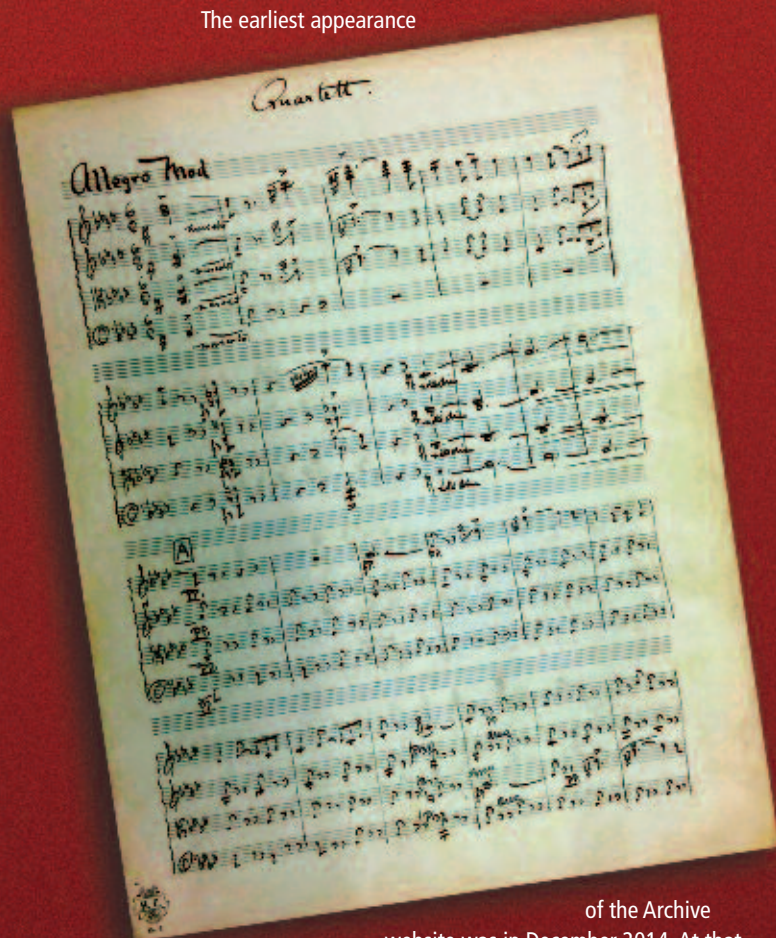 The earliest appearance
Quartett.
Allegro Mod
A
of the Archive
website was in December 2014. At that